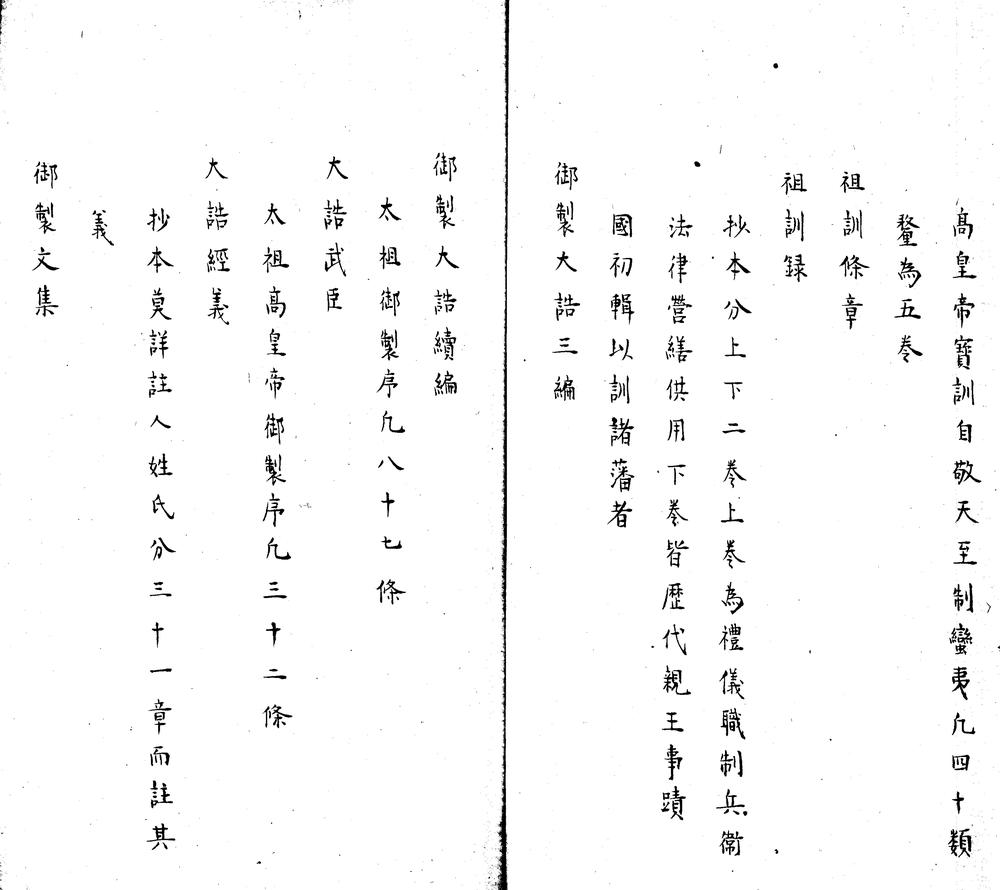 高皇帝寶訓自敬天至制蠻夷凡四十類
釐為五卷
祖訓條章
祖訓録
抄本分上下二卷上卷為禮儀職制兵衛
法律營繕供用下卷皆歷代親王事蹟
國初輯以訓諸藩者
御製大誥三編
御製大誥續編
太祖御製序凡八十七條
大誥武臣
太祖高皇帝御製序凡三十二條
大誥經義
抄本莫詳註人姓氏分三十一章而註其
義
御製文集